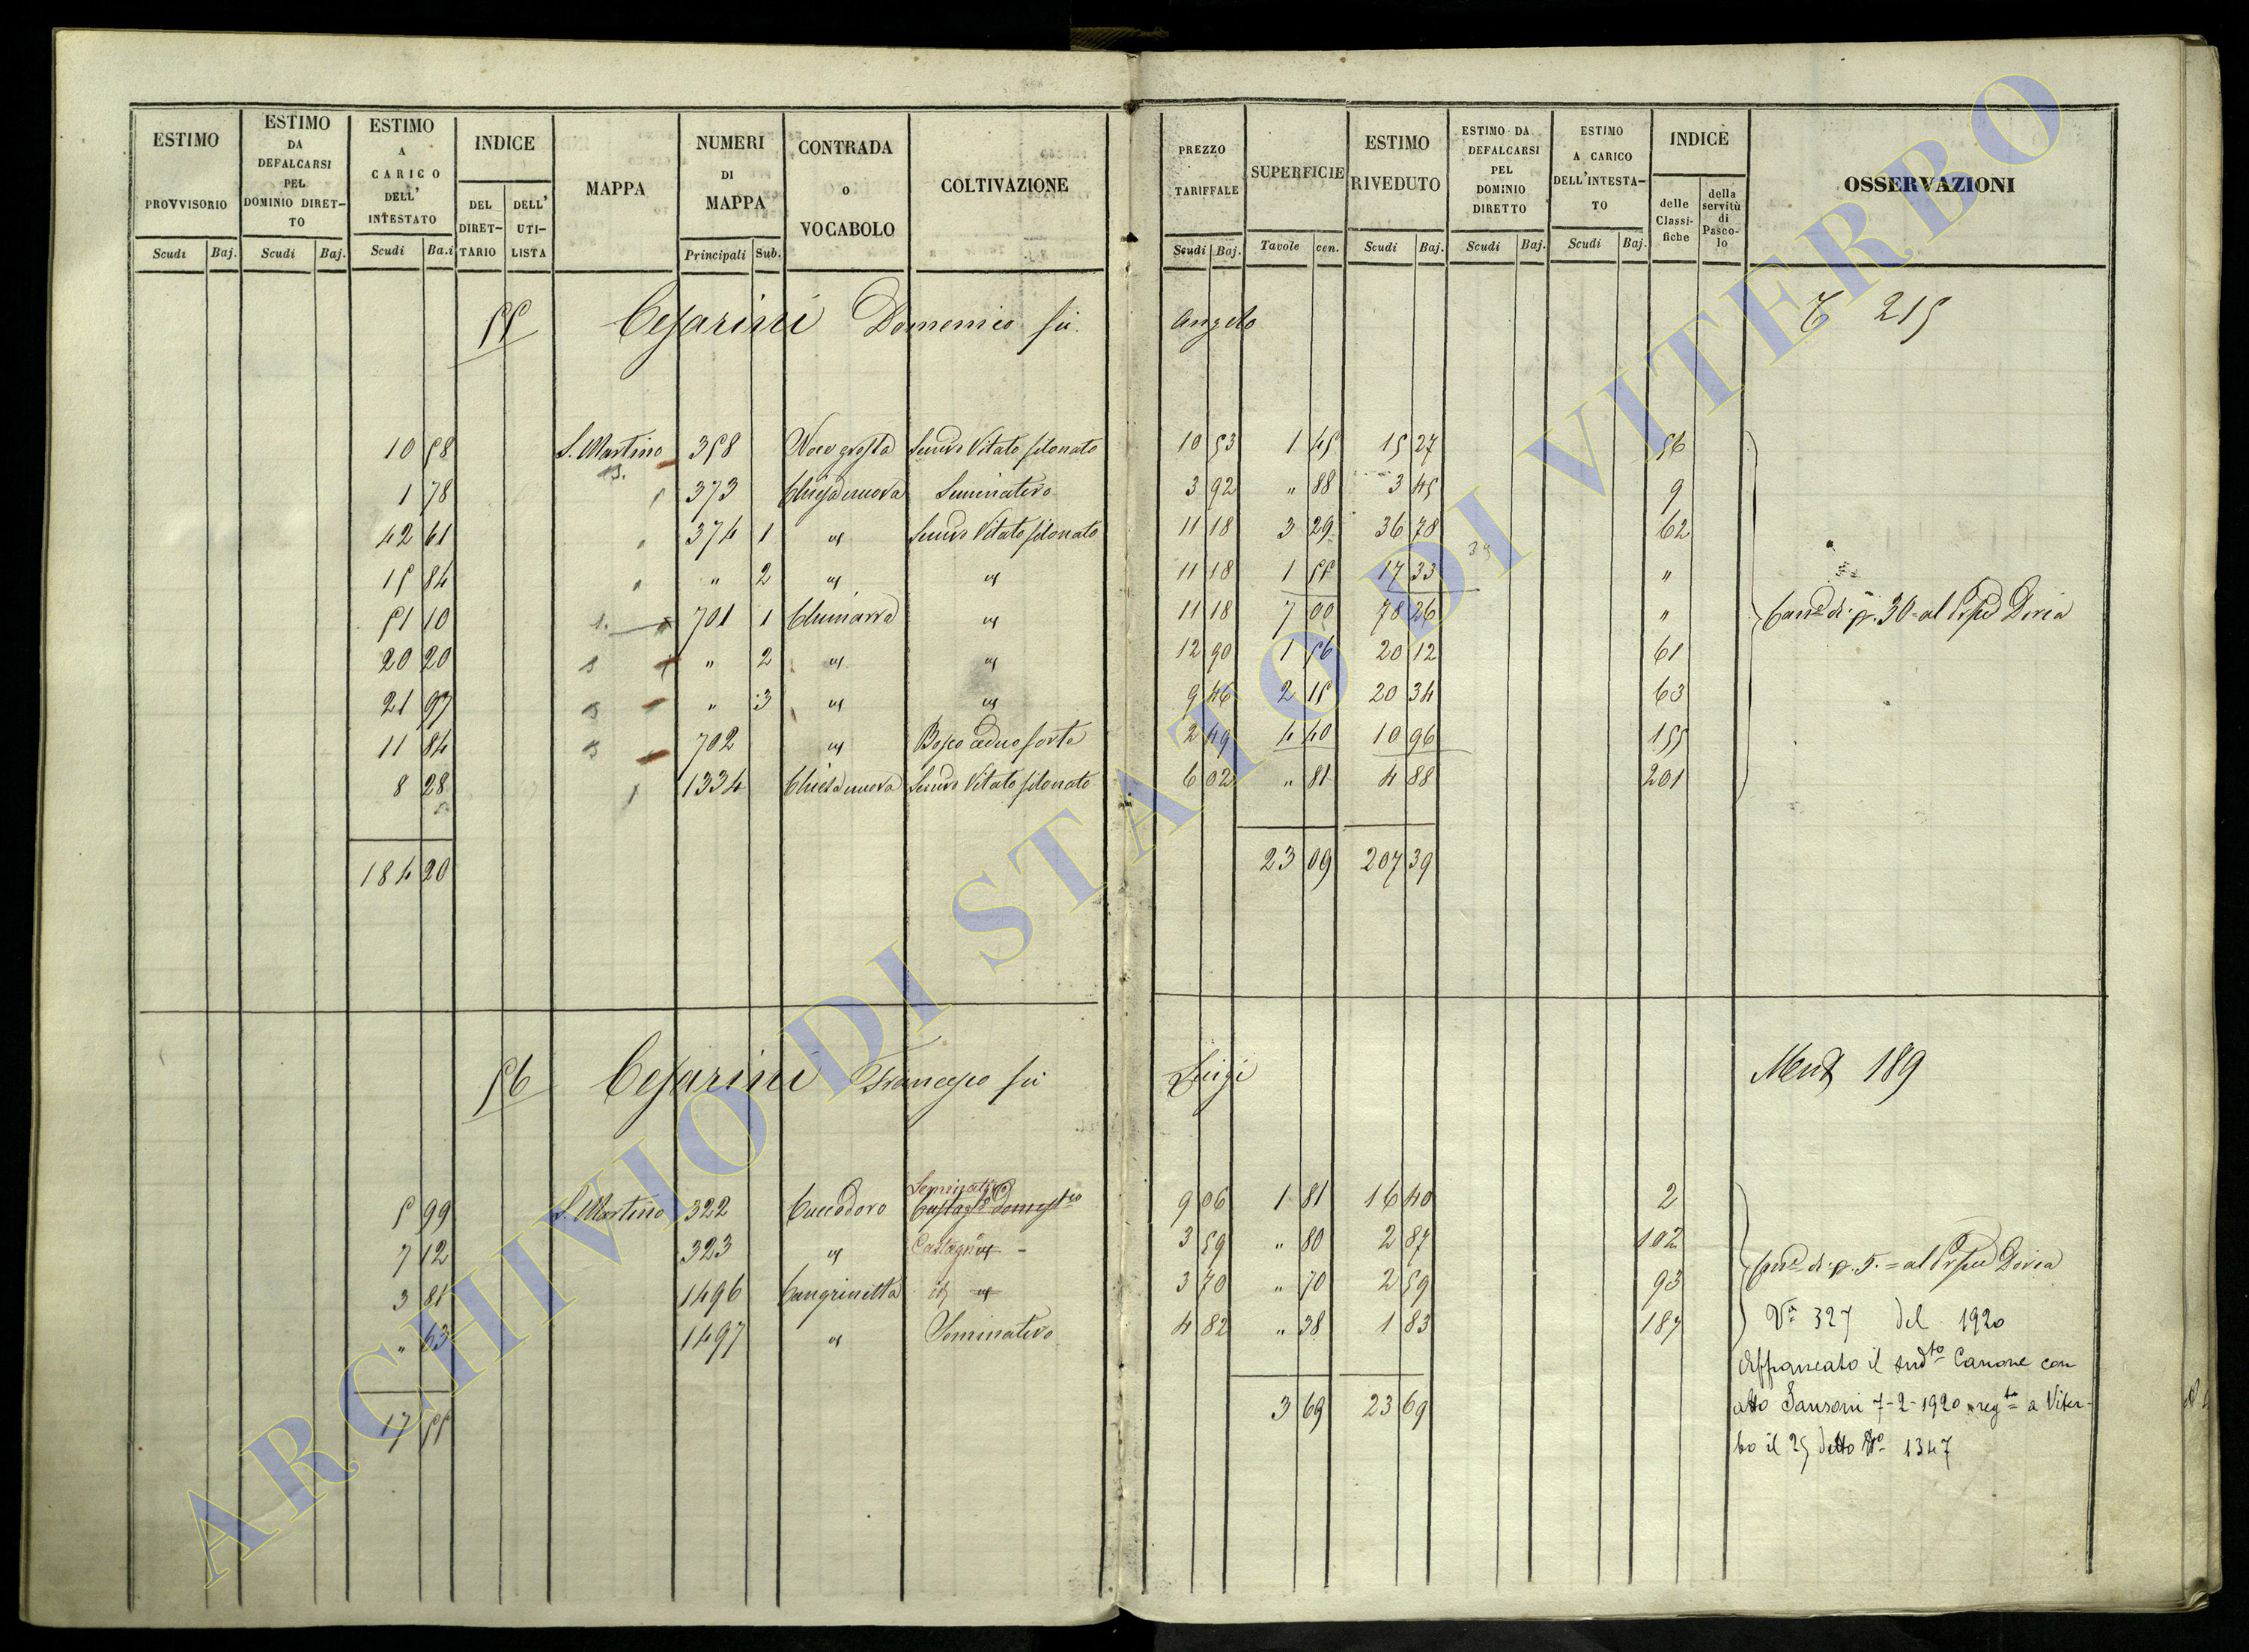 ESTIMO PROVVISORIO Scudi Baj.
ESTIMO DA DEFALCARSI PEL DOMINIO DIRET-TO Scudi Baj.
ESTIMO A CARICO DELL' INTESTATO Scudi Ba.i
INDICE DEL DIRET-TARIO DELL' UTI-LISTA
MAPPA
NUMERI DI MAPPA Principali Sub.
CONTRADA o VOCABOLO
COLTIVAZIONE
PREZZO TARIFFALE Scudi Baj.
SUPERFICIE Tavole cen.
ESTIMO RIVEDUTO Scudi Baj.
ESTIMO DA DEFALCARSI PEL DOMINIO DIRETTO Scudi Baj.
ESTIMO A CARICO DELL'INTESTA-TO Scudi Baj.
INDICE delle Classi-fiche della servitù di Pasco-lo
OSSERVAZIONI
55 Cesarini Domenico fu Angelo 215
10 58 S. Martino 358 Noce grossa Semvo Vitato filonato 10 53 1 45 15 27 56
1 78 373 Chiesa nuova Seminativo 3 92 " 88 3 45 9
42 61 374 1 " Semvo Vitato filonato 11 18 3 29 36 78 62
15 84 " 2 " " 11 18 1 55 17 33 "
51 10 701 1 " 11 18 7 00 78 26 "
al Pspe Doria
20 20 " 2 " " 12 90 1 56 20 12 61
21 97 " 3 " " 9 46 2 15 20 34 63
11 84 702 " Bosco ceduo forte 2 49 4 40 10 96 155
8 28 1334 Chiesa nuova Semvo Vitato filonato 6 02 " 81 4 88 201
184 20 23 09 207 39
56 Cesarini Francesco fu Luigi 189
Seminativo
5 99 S. Martino 322 Cuccodoro Castago domestco 9 06 1 81 16 40 2
7 12 323 " Castagno 3 59 " 80 2 87 102
al Pspe Doria
3 81 1496 Cangrinetta id 3 70 " 70 2 59 93
" 63 1497 " Seminativo 4 82 " 38 1 83 187
Va 327 del 1920
Affrancato il sudto Canone con
17 55 3 69 23 69
atto Sansoni 7-2-1920 regto a Viter-
bo il 25 detto No 1347
ARCHIVIO DI STATO DI VITERBO